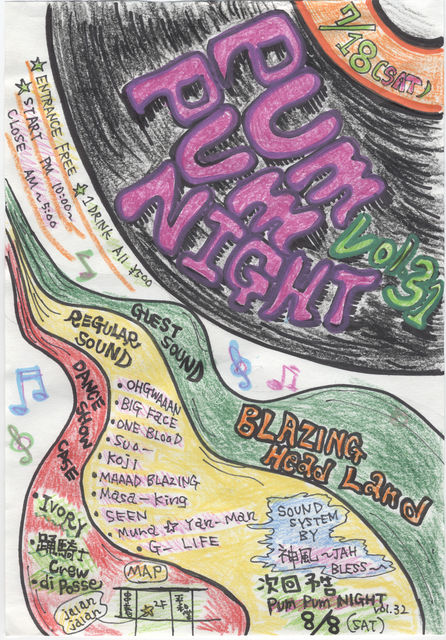 7/18(SAT)
PUM
PUM
NIGHT
vol.31
★ENTRANCE FREE
★START PM 10:00~
CLOSE AM~5:00
★1 DRINK All ¥500
GUEST SOUND
BLAZING
Head Land
REGULAR
SOUND
・OHGWAAAN
・BIG FACE
・ONE BLOOD
・Suo-
・Koji
・MAAAD BLAZING
・Masa-King
SEEN
・Muna☆Yan-Man
・G- LIFE
DANCE SHOW
CASE
・IVORY
・踊騎士
Crew
・di Posse
Jalan
Jalan
MAP
2F
SOUND
SYSTEM
BY
神風~JAH
BLESS~
次回予告
PUM PUM NIGHT
vol.32
8/8 (SAT)